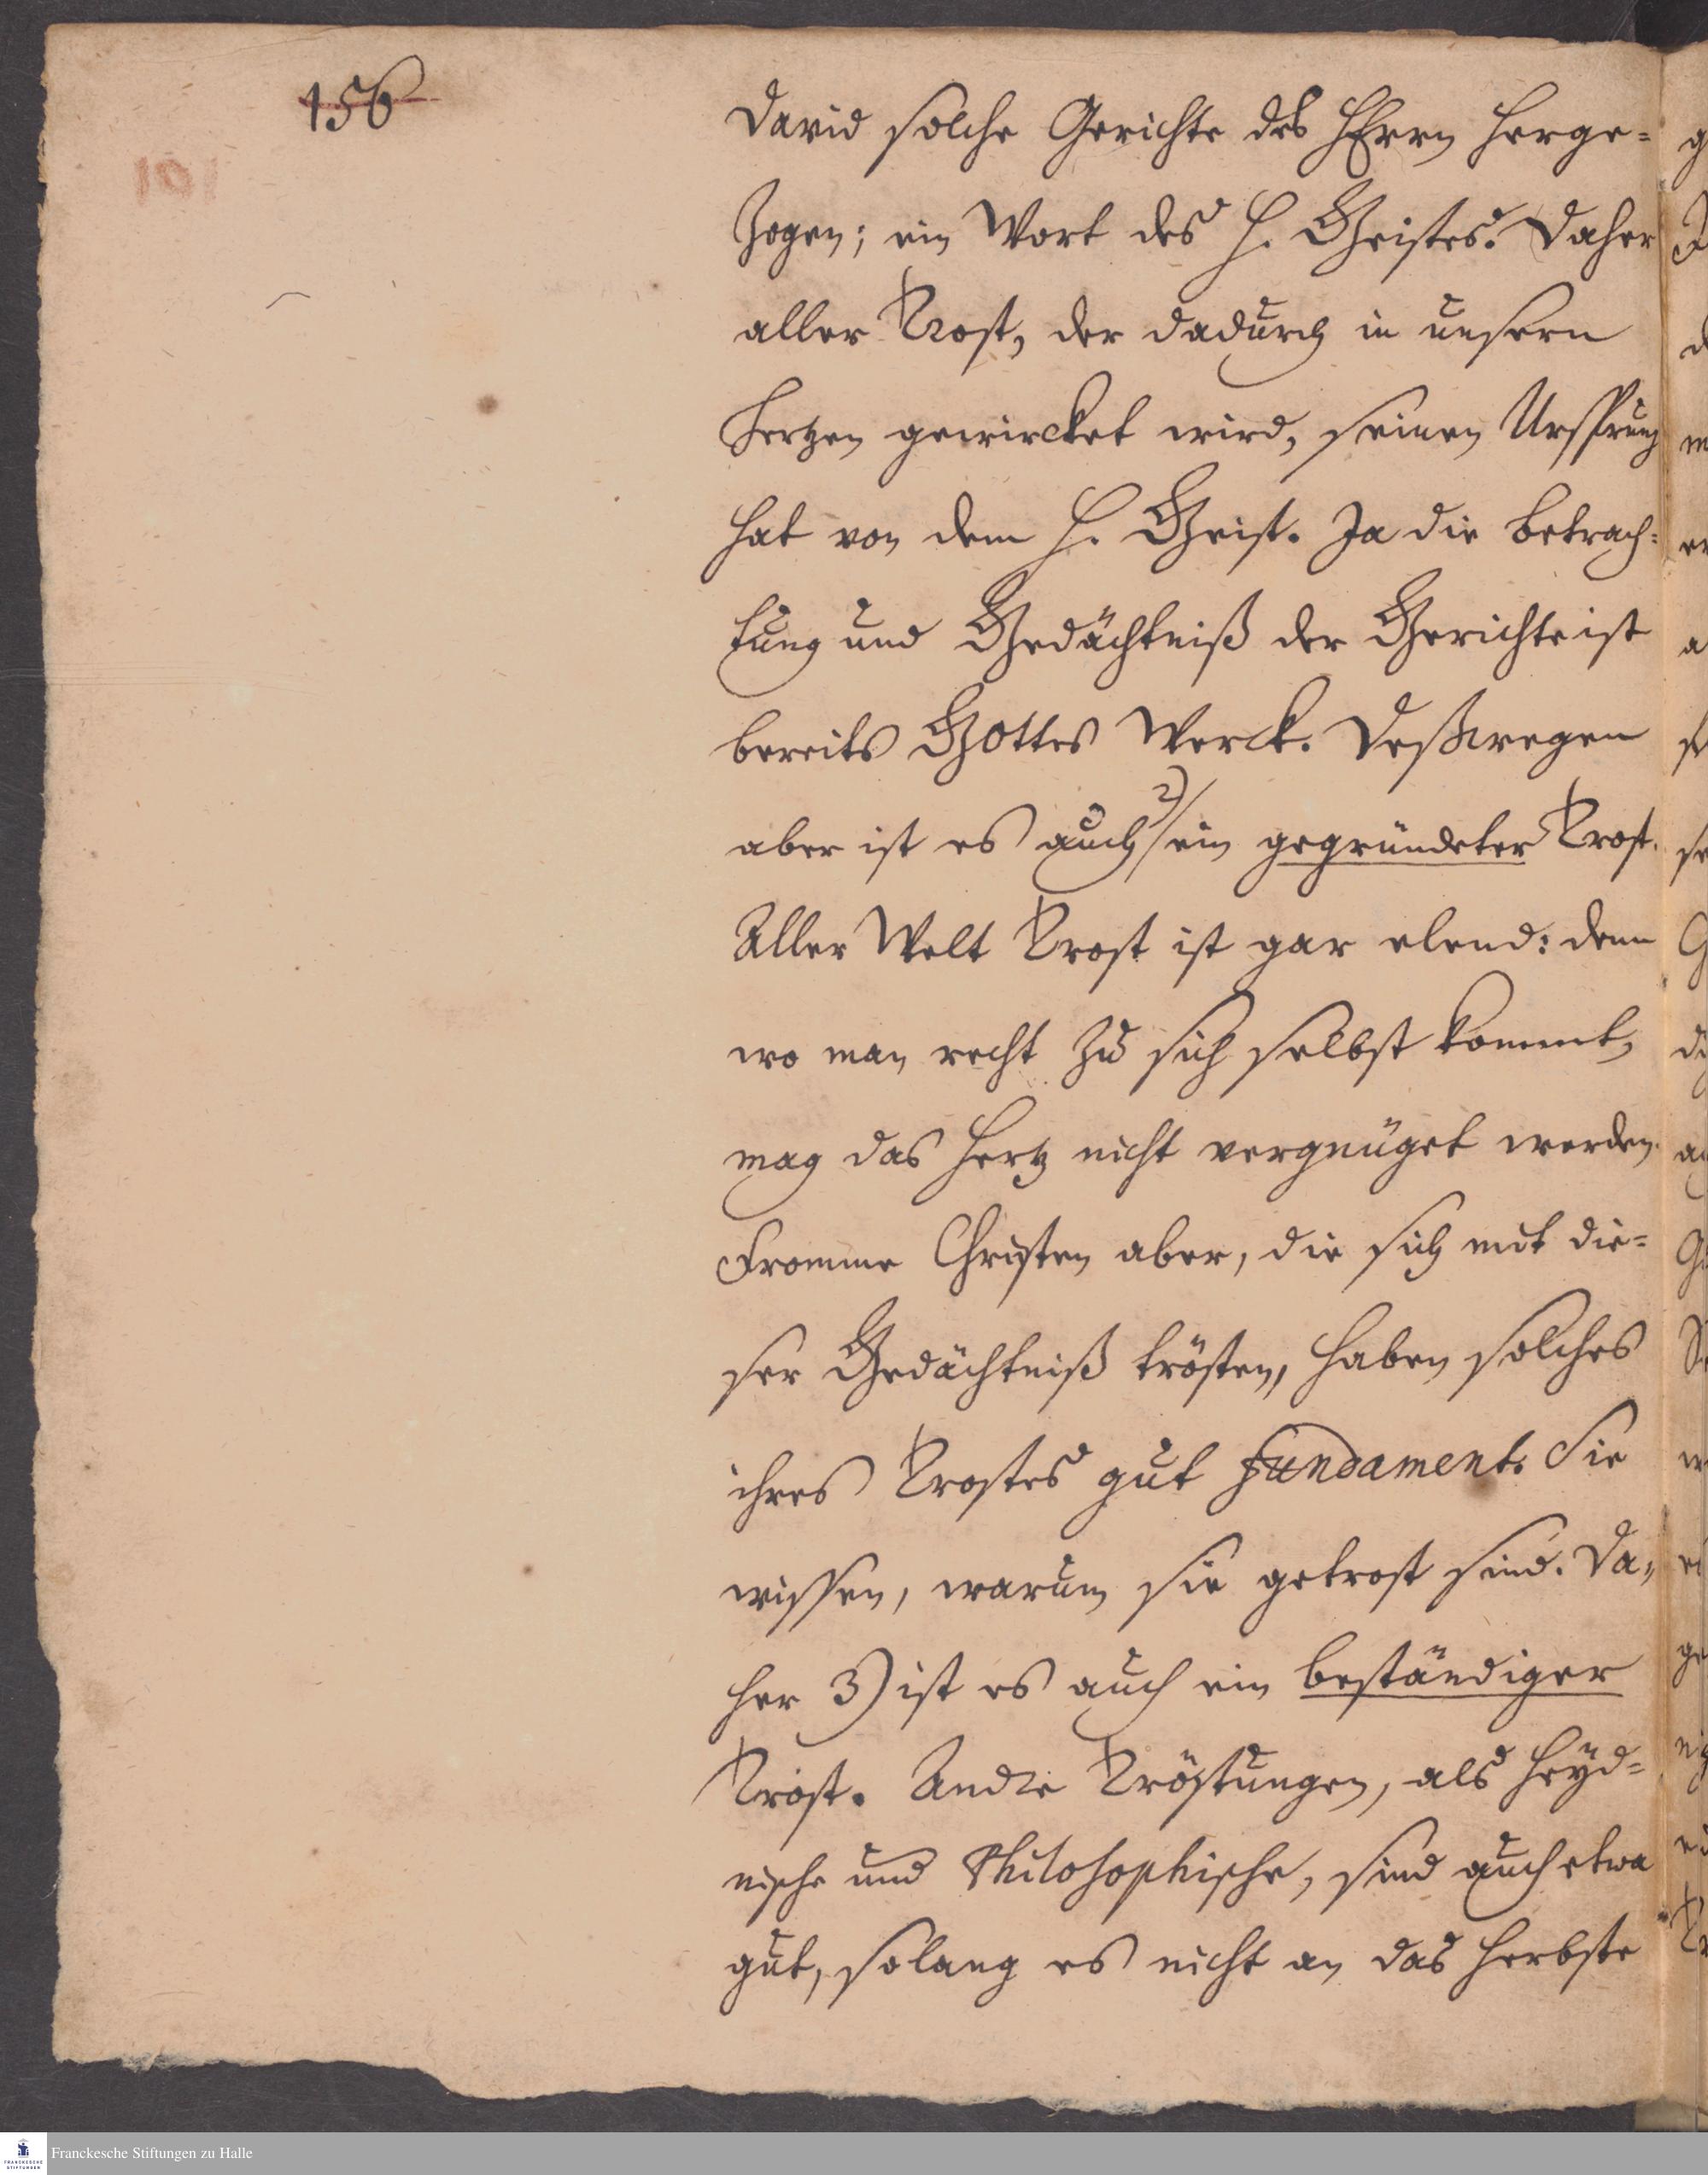 156
David solche Gerichte des HErrn herge=
zogen; ein Wort des H. Geistes. Daher
aller Trost, der dadurch in unsern
Hertzen gewircket wird, seinen Ursprung
hat von dem H. Geist. Ja die betrach=
tung und Gedächtniß der Gerichte ist
bereits GOttes Werck. Deßwegen
aber ist es auch 2) ein gegründeter Trost.
Aller Welt Trost ist gar elend: denn
wo man recht zu sich selbst kommt,
mag das Hertz nicht vergnüget werden.
Fromme Christen aber, die sich mit die=
ser Gedächtniß trösten, haben solches
ihres Trostes gut fundament. Sie
wissen, warum sie getrost sind. Da=
her 3) ist es auch ein beständiger
Trost. Andre Tröstungen, als heyd=
nische und Philosophische, sind auch etwa
gut, solang es nicht an das herbste
Franckesche Stiftungen zu Halle